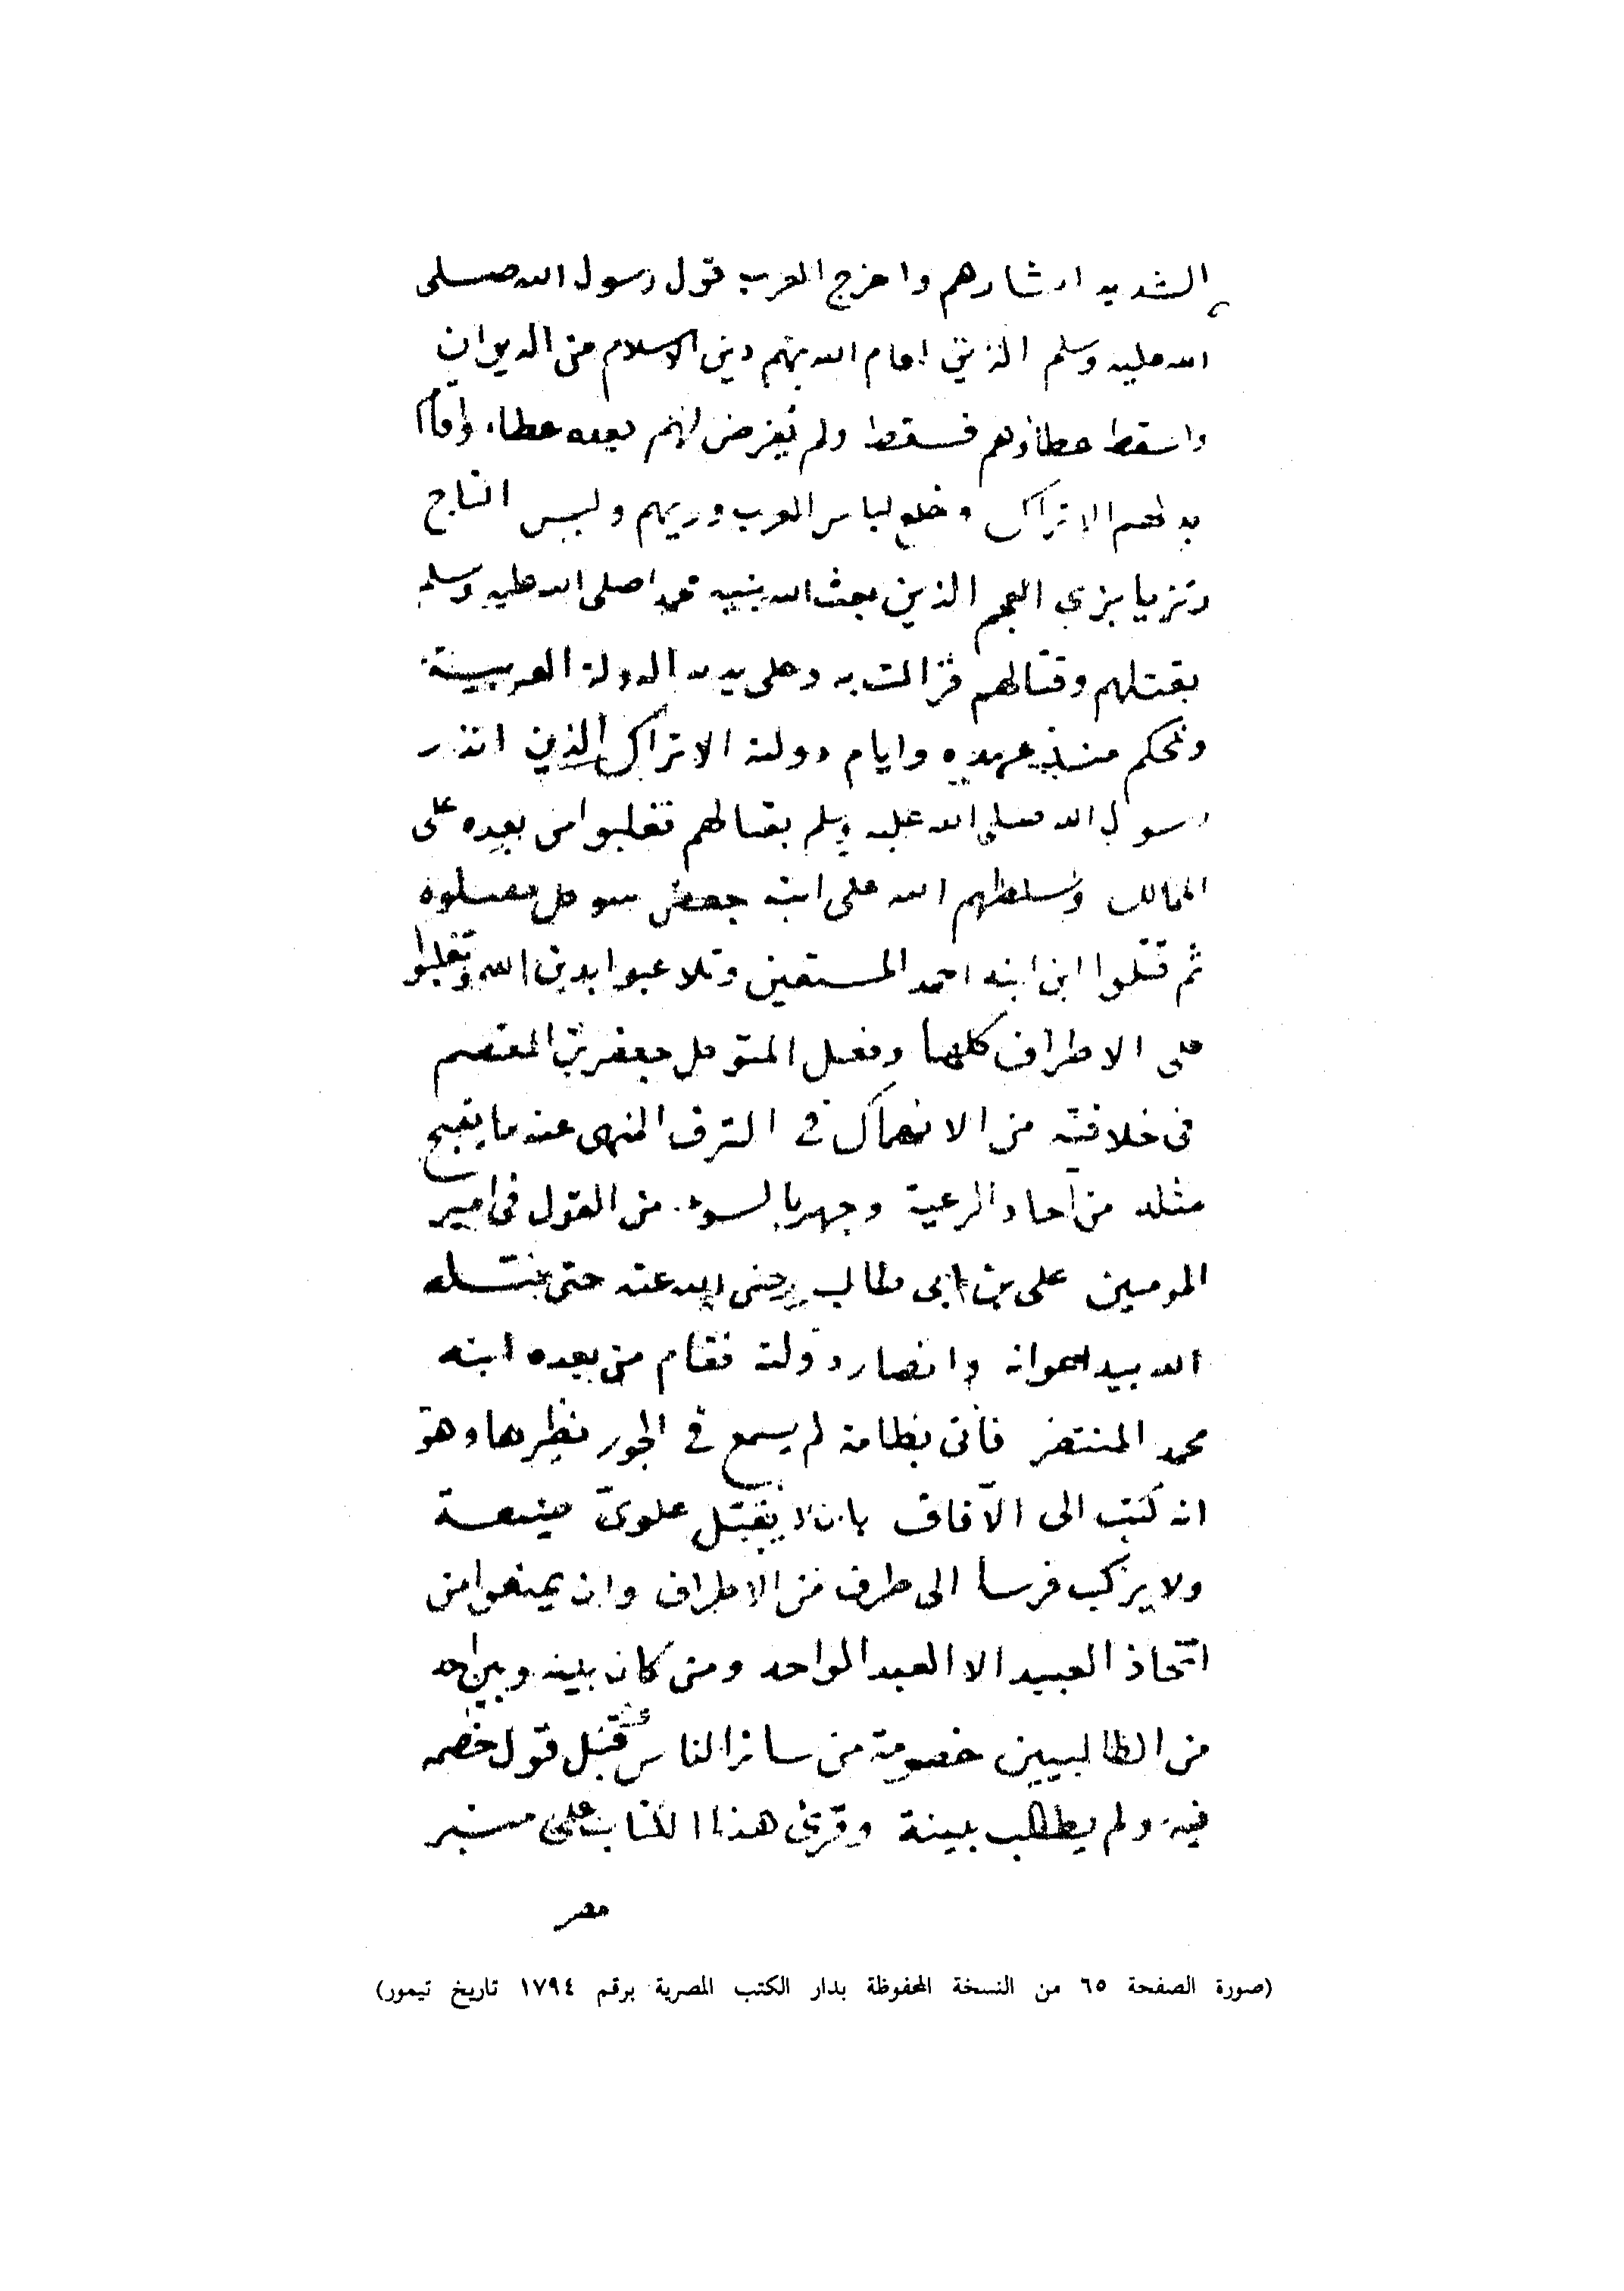 الشديد اىشارهم واخرج العرب قول رسول الله صلى
الله عليه وسلم الذين اقام الله بهم دين الاسلام من الديوان
واسقط عطاؤهم فسقط ولم يفرض لهم بعده عطاء واقام
بدلهم الاتراك وخلع لباس العرب وزيهم ولبس التاج
وتزيا بزي العجم الذين بعث الله نبيه محمدا صلى الله عليه وسلم
بقتلهم وقتالهم فزالت به وعلى يديه الدولة العربية
وتحكم منذ عهده وايام دولته الاتراك الذين انذر
رسول الله صلى الله عليه وسلم بقتالهم فغلبوا من بعده على
الممالك وسلطهم الله على ابنه جعفر المتوكل فقتلوه
ثم قتلوا ابن ابنه احمد المستعين وتلاعبوا بدين الله وتغلبوا
على الاطراف كلها وفعل المتوكل جعفر بن المعتصم
في خلافته من الانهماك في الترف المنهى عنه ما يقبح
مثله من آحاد الرعية وجهر بالسوء من القول في امير
المومنين على بن ابى طالب رضى الله عنه حتى قتله
الله بيد اعوانه وانصار دولته فقام من بعده ابنه
محمد المنتصر فاتى بطامة لم يسمع في الجور نظيرها وهو
انه كتب الى الآفاق بان لا يقبل علوى ضيعة
ولا يركب فرسا الى طرف من الاطراف وان يمنعوا من
اتخاذ العبيد الا العبد الواحد ومن كان بينه وبين احد
من الطالبيين خصومة من سائر الناس قبل قول خصمه
فيه ولم يطالب ببينة وقرئ هذا الكتاب على منبر
مصر
(صورة الصفحة ٦٥ من النسخة المحفوظة بدار الكتب المصرية برقم ١٧٩٤ تاريخ تيمور)